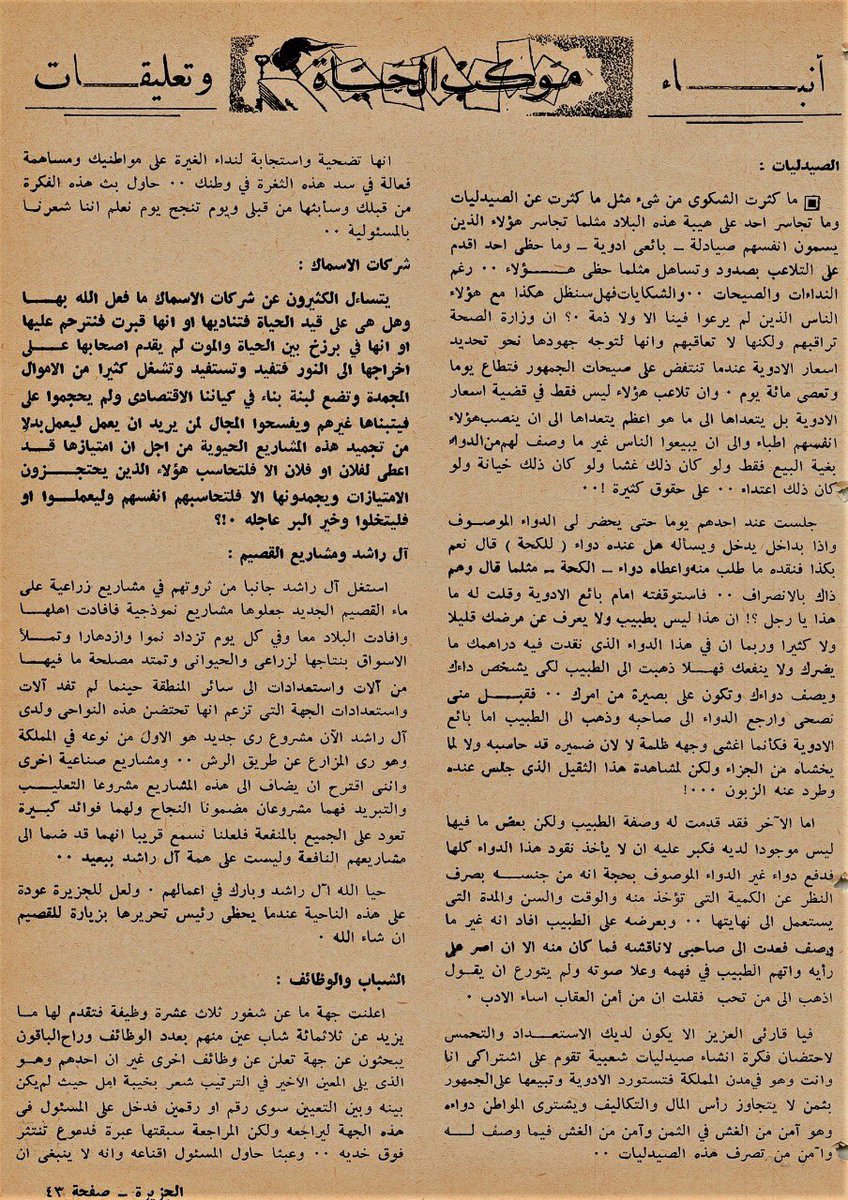 أنبــــــاء
موكب الحياة
وتعليقــات
الصيدليات :
ما كثرت الشكوى من شىء مثل ما كثرت عن الصيدليات
وما تجاسر احد على هيبة هذه البلاد مثلما تجاسر هؤلاء الذين
يسمون انفسهم صيادلة ــ بائعى ادوية ــ وما حظى احد اقدم
على التلاعب بصدود وتساهل مثلما حظى هــــؤلاء ٠٠ رغم
النداءات والصيحات ٠٠ والشكايات فهل سنظل هكذا مع هؤلاء
الناس الذين لم يرعوا فينا الا ولا ذمة ٠؟ ان وزارة الصحة
تراقبهم ولكنها لا تعاقبهم وانها لتوجه جهودها نحو تحديد
اسعار الادوية عندما تنتفض على صيحات الجمهور فتطاع يوما
وتعصى مائة يوم ٠ وان تلاعب هؤلاء ليس فقط في قضية اسعار
الادوية بل يتعداها الى ما هو اعظم يتعداها الى ان ينصب هؤلاء
انفسهم اطباء والى ان يبيعوا الناس غير ما وصف لهم من الدواء
بغية البيع فقط ولو كان ذلك غشا ولو كان ذلك خيانة ولو
كان ذلك اعتداء ٠٠ على حقوق كثيرة !٠٠
جلست عند احدهم يوما حتى يحضر لى الدواء الموصــوف
واذا بداخل يدخل ويسأله هل عنده دواء ( للكحة ) قال نعم
بكذا فنقده ما طلب منه واعطاه دواء ــ الكحة ــ مثلما قال وهم
ذاك بالانصراف ٠٠ فاستوقفته امام بائع الادوية وقلت له ما
هذا يا رجل ؟! ان هذا ليس بطبيب ولا يعرف عن مرضك قليلا
ولا كثيرا وربما ان في هذا الدواء الذى نقدت فيه دراهمك ما
يضرك ولا ينفعك فهــلا ذهبت الى الطبيب لكى يشخص داءك
ويصف دواءك وتكون على بصيرة من امرك ٠٠ فقبــل منى
نصحى وارجع الدواء الى صاحبه وذهب الى الطبيب اما بائع
الادوية فكأنما اغشى وجهه ظلمة لا لان ضميره قد حاسبه ولا لما
يخشاه من الجزاء ولكن لمشاهدة هذا الثقيل الذى جلس عنده
وطرد عنه الزبون ٠٠٠!
اما الآخر فقد قدمت له وصفة الطبيب ولكن بعض ما فيها
ليس موجودا لديه فكبر عليه ان لا يأخذ نقود هذا الدواء كلها
فدفع دواء غير الدواء الموصوف بحجة انه من جنســه بصرف
النظر عن الكمية التى تؤخذ منه والوقت والسن والمدة التى
يستعمل الى نهايتها ٠٠ وبعرضه على الطبيب افاد انه غير ما
وصف فعدت الى صاحبى لاناقشه فما كان منه الا ان اصر على
رأيه واتهم الطبيب في فهمه وعلا صوته ولم يتورع ان يقــول
اذهب الى من تحب فقلت ان من أمن العقاب اساء الادب ٠
فيا قارئى العزيز الا يكون لديك الاستعــداد والتحمس
لاحتضان فكرة انشاء صيدليات شعبية تقوم على اشتراكى انا
وانت وهو في مدن المملكة فتستورد الادوية وتبيعها على الجمهور
بثمن لا يتجاوز رأس المال والتكاليف ويشترى المواطن دواءه
وهو آمن من الغش في الثمن وآمن من الغش فيما وصف لــه
وآمن من تصرف هذه الصيدليات ٠٠
انها تضحية واستجابة لنداء الغيرة على مواطنيك ومساهمة
فعالة في سد هذه الثغرة في وطنك ٠٠ حاول بث هذه الفكرة
من قبلك وسأبثها من قبلى ويوم تنجح يوم نعلم اننا شعرنــا
بالمسئولية ٠٠
شركات الاسماك :
يتساءل الكثيرون عن شركات الاسماك ما فعل الله بهــا
وهل هى على قيد الحياة فتناديها او انها قبرت فنترحم عليها
او انها في برزخ بين الحياة والموت لم يقدم اصحابها علــى
اخراجها الى النور فتفيد وتستفيد وتشغل كثيرا من الاموال
المجمدة وتضع لبنة بناء في كياننا الاقتصادى ولم يحجموا على
فيتبناها غيرهم ويفسحوا المجال لمن يريد ان يعمل ليعمل بدلا
من تجميد هذه المشاريع الحيوية من اجل ان امتيازها قــد
اعطى لفلان او فلان الا فلتحاسب هؤلاء الذين يحتجــزون
الامتيازات ويجمدونها الا فلتحاسبهم انفسهم وليعملــوا او
فليتخلوا وخير البر عاجله ٠!؟
آل راشد ومشاريع القصيم :
استغل آل راشد جانبا من ثروتهم في مشاريع زراعية على
ماء القصيم الجديد جعلوها مشاريع نموذجية فافادت اهلهــا
وافادت البلاد معا وفي كل يوم تزداد نموا وازدهارا وتمــلأ
الاسواق بنتاجها لزراعى والحيوانى وتمتد مصلحة ما فيهــا
من آلات واستعدادات الى سائر المنطقة حينما لم تفد آلات
واستعدادات الجهة التى تزعم انها تحتضن هذه النواحى ولدى
آل راشد الآن مشروع رى جديد هو الاول من نوعه في المملكة
وهو رى المزارع عن طريق الرش ٠٠ ومشاريع صناعية اخرى
واننى اقترح ان يضاف الى هذه المشاريع مشروعا التعليــب
والتبريد فهما مشروعان مضمونا النجاح ولهما فوائد كبيرة
تعود على الجميع بالمنفعة فلعلنا نسمع قريبا انهما قد ضما الى
مشاريعهم النافعة وليست على همة آل راشد ببعيد ٠٠
حيا الله آل راشد وبارك في اعمالهم ٠ ولعل للجزيرة عودة
على هذه الناحية عندما يحظى رئيس تحريرها بزيارة للقصيم
ان شاء الله ٠
الشباب والوظائف :
اعلنت جهة ما عن شغور ثلاث عشرة وظيفة فتقدم لها مــا
يزيد عن ثلاثمائة شاب عين منهم بعدد الوظائف وراح الباقون
يبحثون عن جهة تعلن عن وظائف اخرى غير ان احدهم وهــو
الذى يلى المعين الاخير في الترتيب شعر بخيبة امل حيث لم يكن
بينه وبين التعيين سوى رقم او رقمين فدخل على المسئول فى
هذه الجهة ليراجعه ولكن المراجعة سبقتها عبرة فدموع تنتثر
فوق خديه ٠٠ وعبثا حاول المسئول اقناعه وانه لا ينبغى ان
الجزيرة ــ صفحة ٤٣